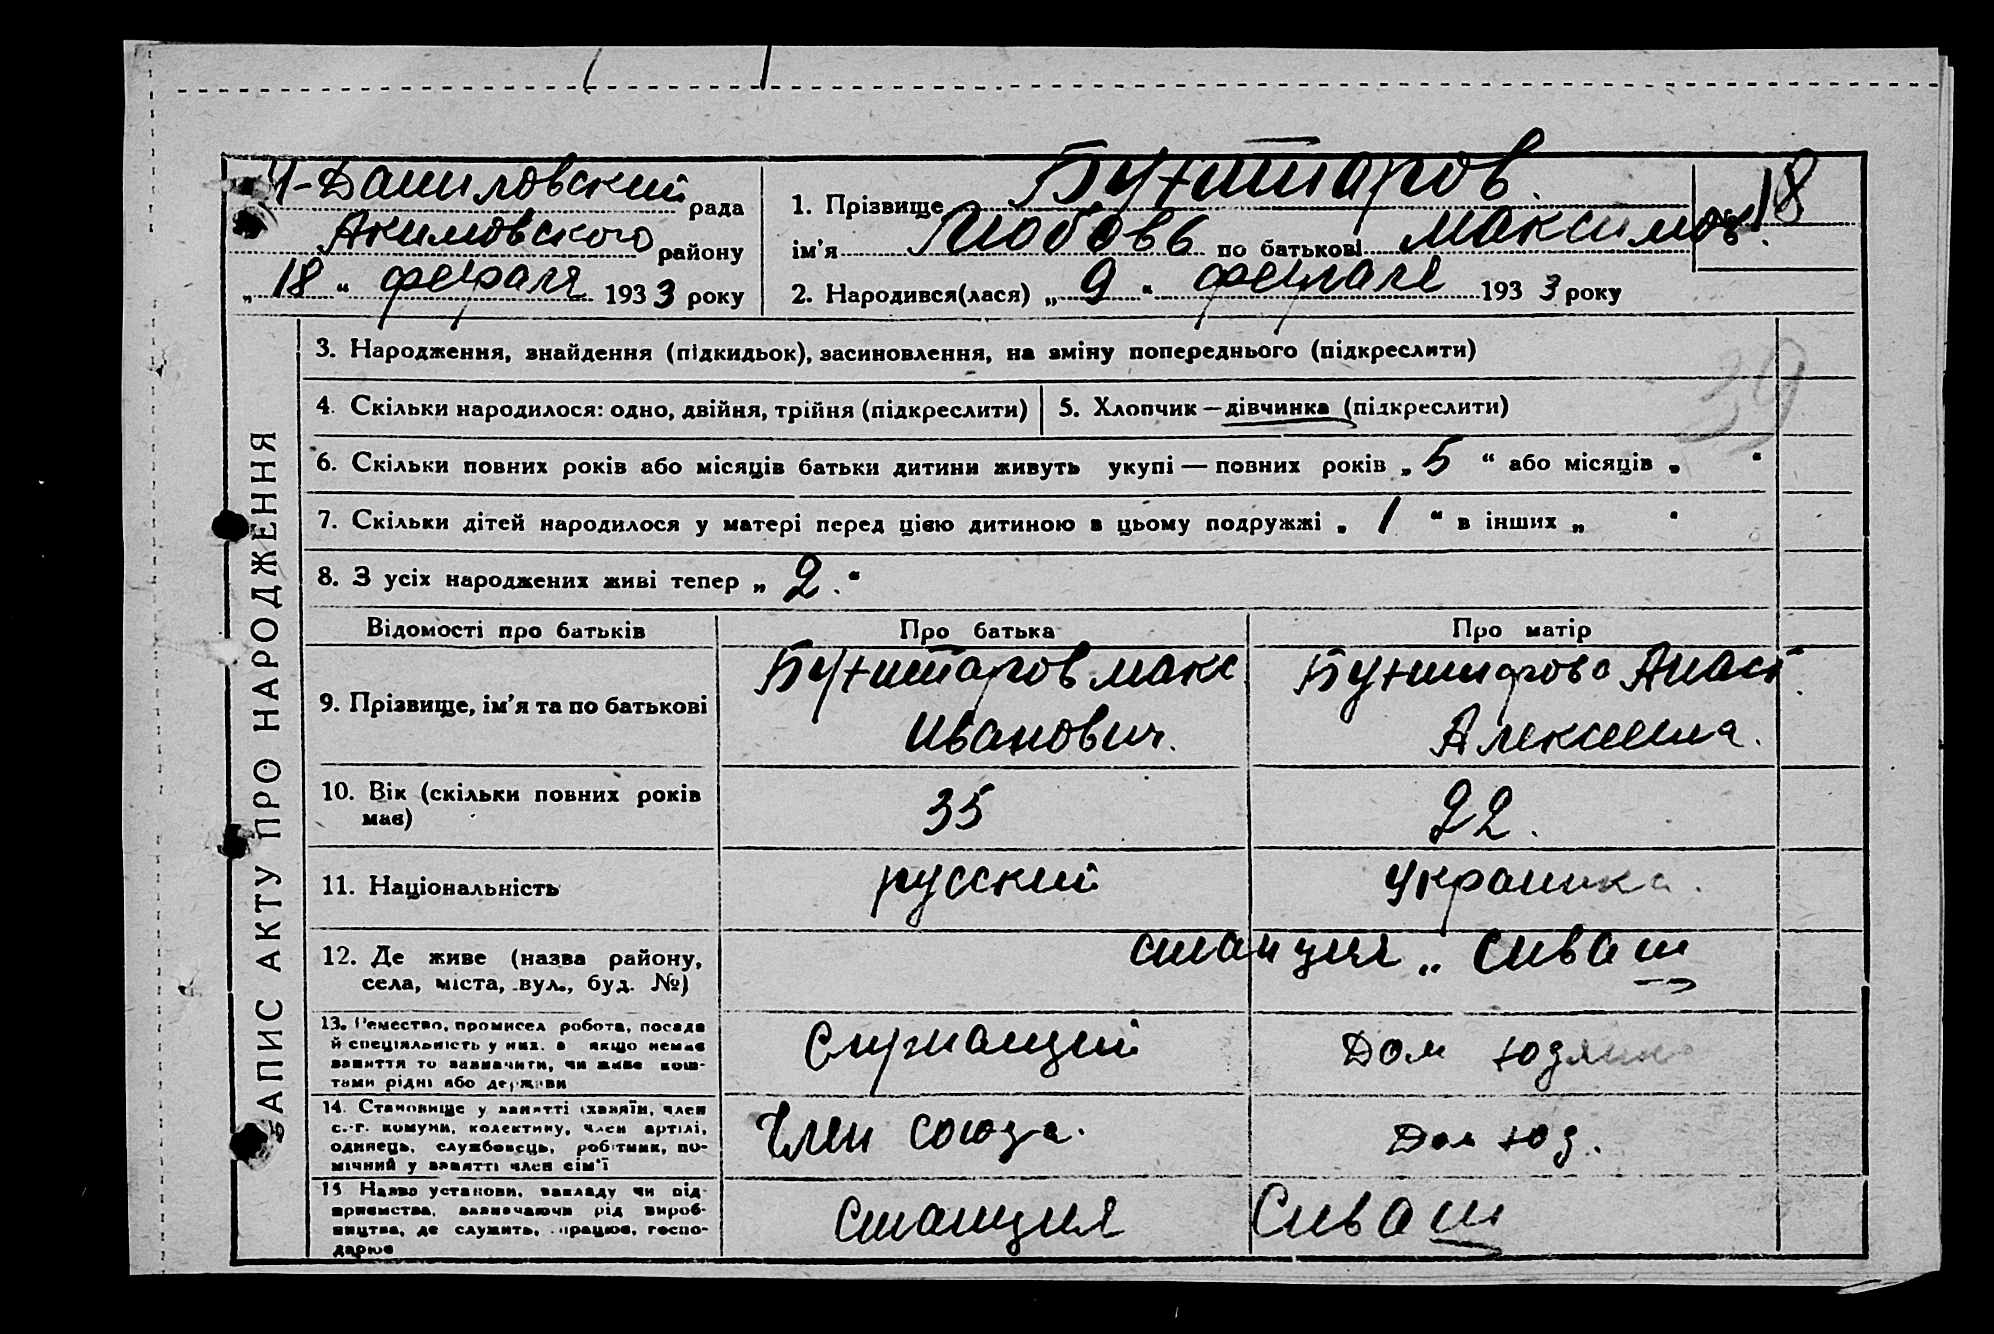 Ч-Даниловский рада
Акимовского району
„ 18 “ февраля 1933 року
1. Прізвище Бухштаров
ім'я Любовь по батькові Максимов.
№ 18
2. Народився(лася) „ 9 “ февраля 1933 року
ЗАПИС АКТУ ПРО НАРОДЖЕННЯ
3. Народження, знайдення (підкидьок), засиновлення, на зміну попереднього (підкреслити)
39
4. Скільки народилося: одно, двійня, трійня (підкреслити)
5. Хлопчик — дівчинка (підкреслити)
6. Скільки повних років або місяців батьки дитини живуть укупі — повних років „ 5 “ або місяців „ “
7. Скільки дітей народилося у матері перед цією дитиною в цьому подружжі „ 1 “ в інших „ “
8. З усіх народжених живі тепер „ 2. “
Відомості про батьків Про батька Про матір
9. Прізвище, ім'я та по батькові
Бухштаров Макс.
Иванович.
Бухштарова Анаст.
Алексеевна.
10. Вік (скільки повних років
має)
35
22.
11. Національність русский украинка.
12. Де живе (назва району,
села, міста, вул., буд. №)
станция „ Сиваш
13. Ремество, промисел робота, посада
й спеціяльність у них. а якщо немає
заняття то зазначити, чи живе кош-
тами рідні або держави
Служащий
Дом хозяйка
14. Становище у занятті (хазяїн, член
с.-г. комуни, колективу, член артілі,
одинець, службовець, робітник, по-
мічний у занятті член сім'ї
Член союза.
Дом хоз.
15 Назва установи, закладу чи під-
приємства, зазначаючи рід вироб-
ництва, де служить, працює, госпо-
дарює
Станция Сиваш